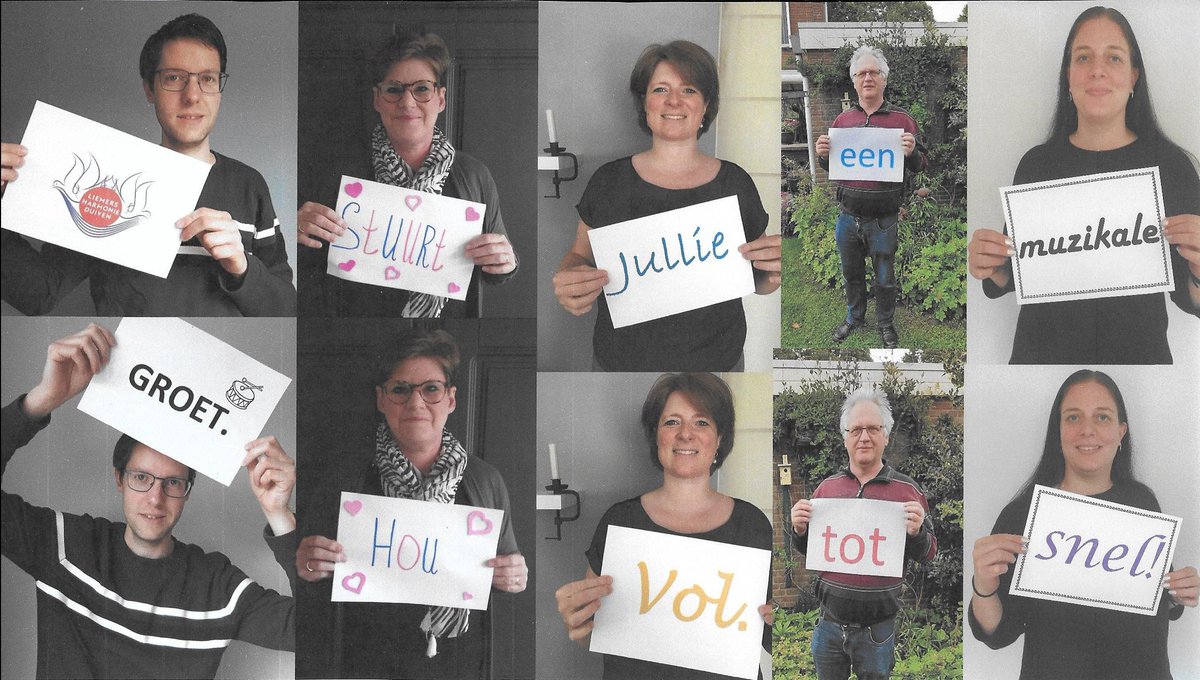 LIEMERS
HARMONIE
DUIVEN
StUURt
Jullie
een
muzikale
GROET.
Hou
Vol.
tot
snel!